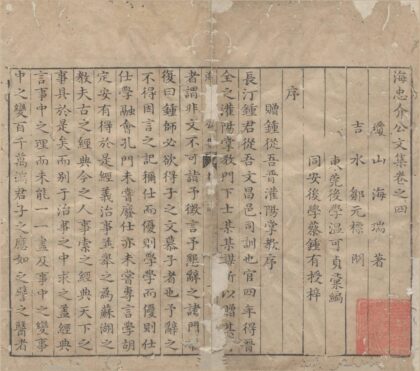 海忠介公文集卷之四
瓊山海瑞著
吉水鄒元標閱
東莞後學溫可貞彙編
同安後學蔡鍾有授梓
序
贈鍾從吾晉灌陽掌教序
長汀鍾君從吾文昌邑司訓也官四年得晉
全之灌陽掌教門下士某某謀所以贈某
者謂非文不可請予徵言予懇辭之諸門
復曰鍾師必欲得子之文慕子者也予辭之
不得因言之記稱仕而優則學學而優則仕
仕學融會孔門未嘗廢仕亦未嘗專言學胡
定安有得於是經義治事並舉之為蘇湖之
教夫古之經典今之人事當之經典天下之
事具於是矣而別于治事之中求之蓋經典
言事中之理而未能一一盡及事中之變事
中之變百千萬端君子之應如之譬之醫者